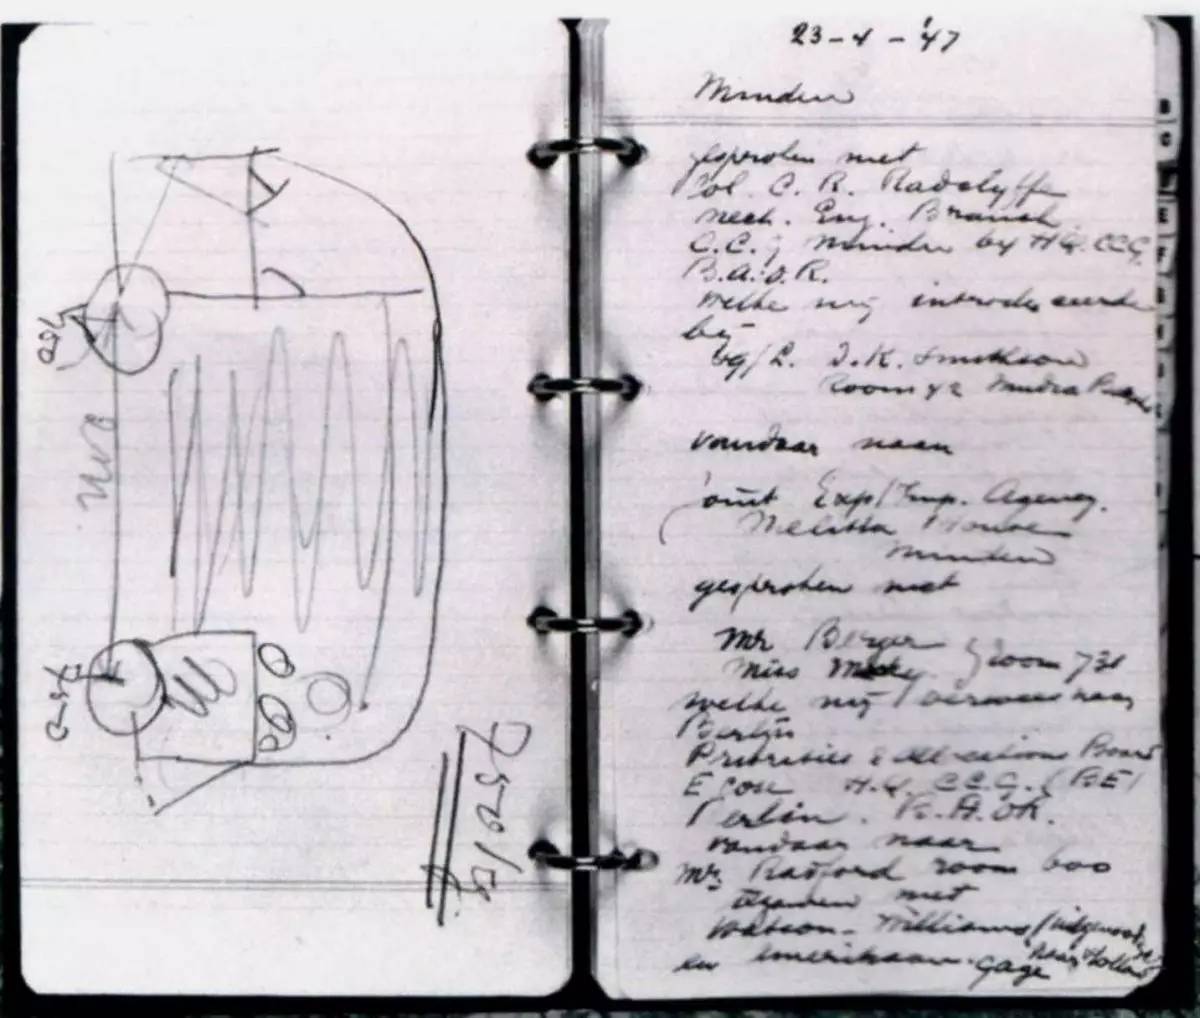 750 kg
750
750
23-4-'47
Minden
gesproken met
Col. C. R. Radclyffe
Mech. Eng. Branch
C.C.G. Minden by HQ. CCG.
B.A.O.R.
welke mij introduceerde
bij
J.K.
Room 42
vandaar naar
Joint Exp/Imp. Agency.
Melitta House
Minden
gesproken met
Mr Berger
Miss Mackey } room 731
welke mij verwees naar
Berlijn
Priorities & Allocations Board
Econ H.Q. C.C.G. (BE)
Berlin. B.A.O.R.
vandaar naar
Mr. Radford room 600
tezamen met
Watson-Williams
en Amerikaan. Gage
naar Holland